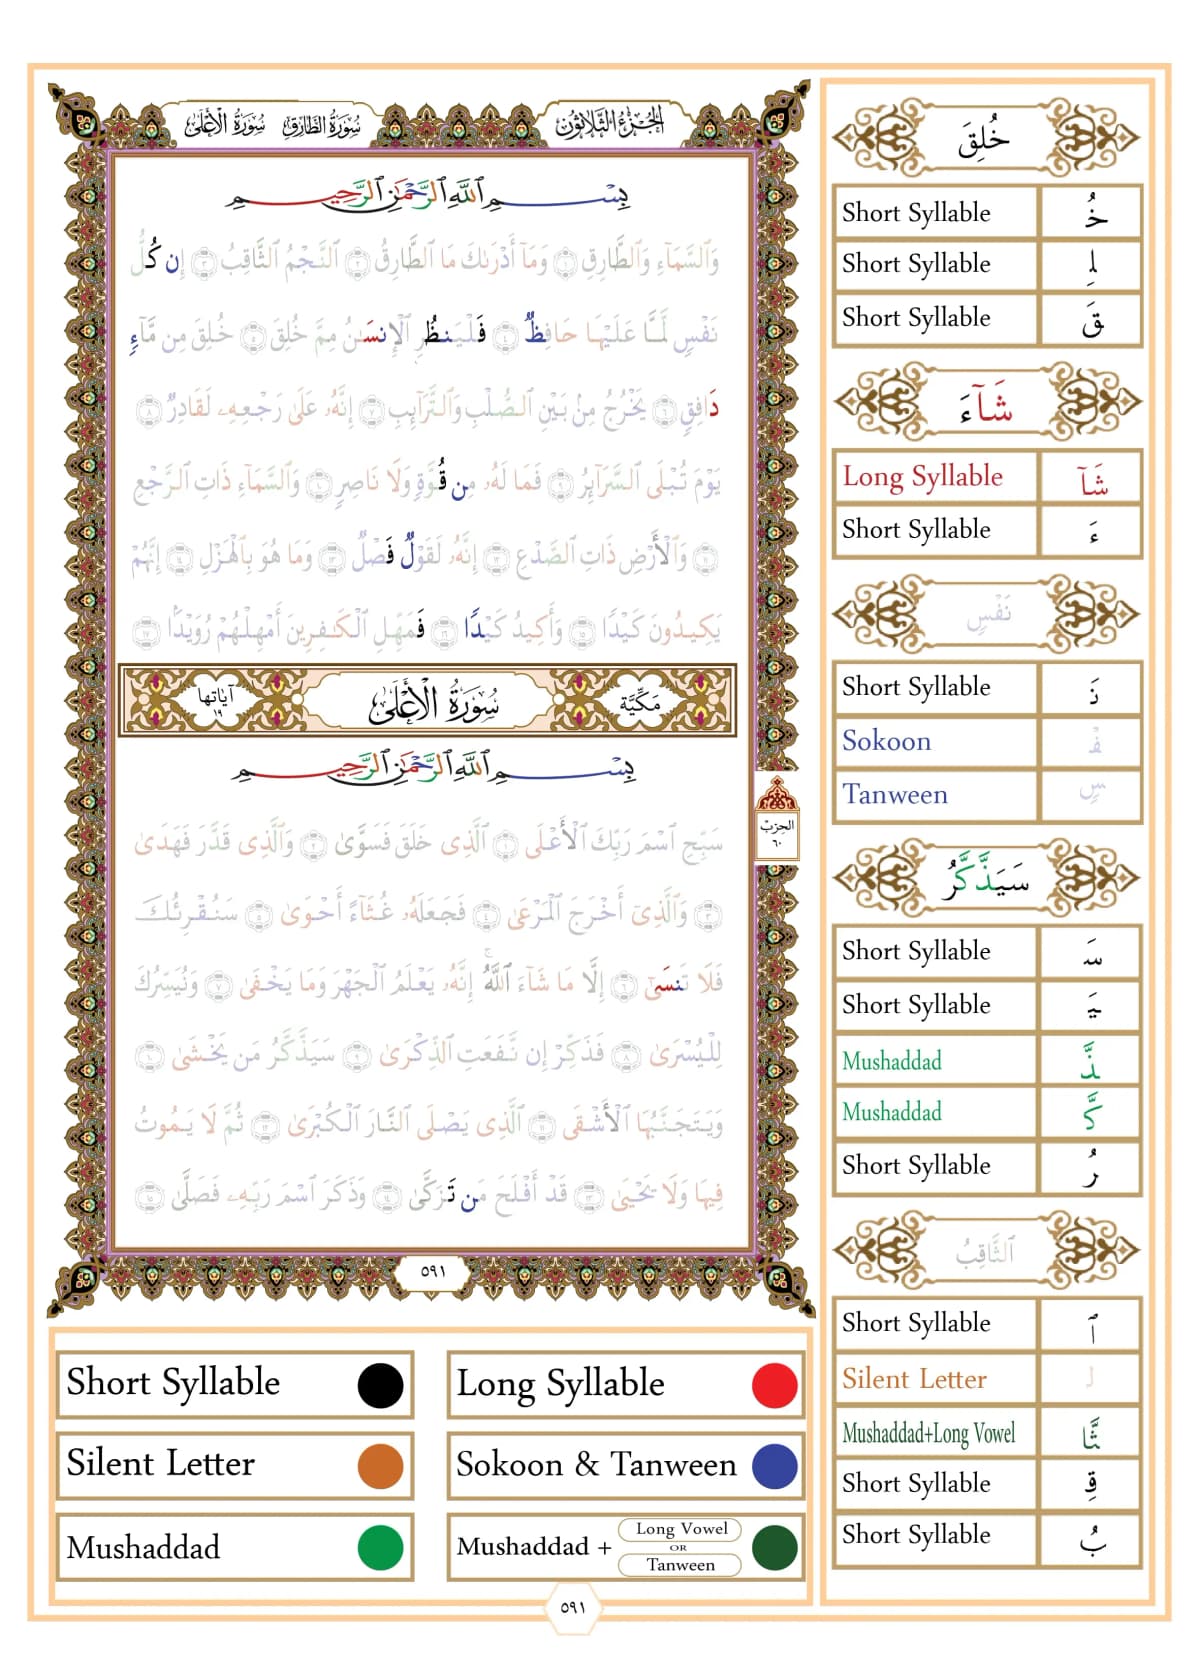 الجزء الثلاثون
سورة الطارق سورة الأعلى
بِسْمِ ٱللَّهِ ٱلرَّحْمَٰنِ ٱلرَّحِيمِ
وَٱلسَّمَآءِ وَٱلطَّارِقِ ١ وَمَآ أَدْرَىٰكَ مَا ٱلطَّارِقُ ٢ ٱلنَّجْمُ ٱلثَّاقِبُ ٣ إِن كُلُّ
نَفْسٍ لَّمَّا عَلَيْهَا حَافِظٌ ٤ فَلْيَنظُرِ ٱلْإِنسَٰنُ مِمَّ خُلِقَ ٥ خُلِقَ مِن مَّآءٍ
دَافِقٍ ٦ يَخْرُجُ مِنۢ بَيْنِ ٱلصُّلْبِ وَٱلتَّرَآئِبِ ٧ إِنَّهُۥ عَلَىٰ رَجْعِهِۦ لَقَادِرٌ ٨
يَوْمَ تُبْلَى ٱلسَّرَآئِرُ ٩ فَمَا لَهُۥ مِن قُوَّةٍ وَلَا نَاصِرٍ ١٠ وَٱلسَّمَآءِ ذَاتِ ٱلرَّجْعِ
١١ وَٱلْأَرْضِ ذَاتِ ٱلصَّدْعِ ١٢ إِنَّهُۥ لَقَوْلٌ فَصْلٌ ١٣ وَمَا هُوَ بِٱلْهَزْلِ ١٤ إِنَّهُمْ
يَكِيدُونَ كَيْدًا ١٥ وَأَكِيدُ كَيْدًا ١٦ فَمَهِّلِ ٱلْكَٰفِرِينَ أَمْهِلْهُمْ رُوَيْدًۢا ١٧
مَكِّيَّة سُورَةُ الْأَعْلَىٰ آياتها ١٩
بِسْمِ ٱللَّهِ ٱلرَّحْمَٰنِ ٱلرَّحِيمِ
سَبِّحِ ٱسْمَ رَبِّكَ ٱلْأَعْلَى ١ ٱلَّذِى خَلَقَ فَسَوَّىٰ ٢ وَٱلَّذِى قَدَّرَ فَهَدَىٰ
٣ وَٱلَّذِىٓ أَخْرَجَ ٱلْمَرْعَىٰ ٤ فَجَعَلَهُۥ غُثَآءً أَحْوَىٰ ٥ سَنُقْرِئُكَ
فَلَا تَنسَىٰٓ ٦ إِلَّا مَا شَآءَ ٱللَّهُ ۚ إِنَّهُۥ يَعْلَمُ ٱلْجَهْرَ وَمَا يَخْفَىٰ ٧ وَنُيَسِّرُكَ
لِلْيُسْرَىٰ ٨ فَذَكِّرْ إِن نَّفَعَتِ ٱلذِّكْرَىٰ ٩ سَيَذَّكَّرُ مَن يَخْشَىٰ ١٠
وَيَتَجَنَّبُهَا ٱلْأَشْقَى ١١ ٱلَّذِى يَصْلَى ٱلنَّارَ ٱلْكُبْرَىٰ ١٢ ثُمَّ لَا يَمُوتُ
فِيهَا وَلَا يَحْيَىٰ ١٣ قَدْ أَفْلَحَ مَن تَزَكَّىٰ ١٤ وَذَكَرَ ٱسْمَ رَبِّهِۦ فَصَلَّىٰ ١٥
الحزب
٦٠
٥٩١
خُلِقَ
Short Syllable خُ
Short Syllable لِ
Short Syllable قَ
شَآءَ
Long Syllable شَآ
Short Syllable ءَ
نَفْسٍ
Short Syllable نَ
Sokoon فْ
Tanween سٍ
سَيَذَّكَّرُ
Short Syllable سَ
Short Syllable يَ
Mushaddad ذَّ
Mushaddad كَّ
Short Syllable رُ
ٱلثَّاقِبُ
Short Syllable ٱ
Silent Letter ل
Mushaddad+Long Vowel ثَّا
Short Syllable قِ
Short Syllable بُ
Short Syllable
Long Syllable
Silent Letter
Sokoon & Tanween
Mushaddad
Mushaddad + Long Vowel OR Tanween
٥٩١